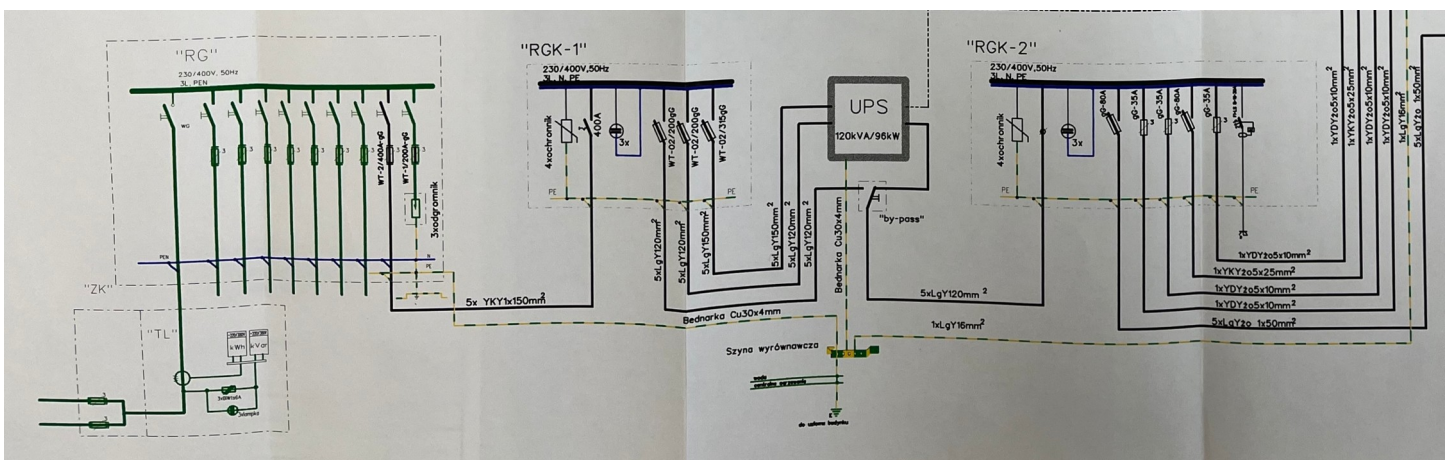 "RG"
230/400V, 50Hz
3L, PEN
WG
3
3
3
3
3
3
3
3
3
WT-2/400A-gG
WT-1/200A-gG
3xodgromnik
PEN
N
PE
"ZK"
"TL"
kWh
kVar
3xlampka
3
3
5x YKY1x150mm²
"RGK-1"
230/400V,50Hz
3L, N, PE
4xochronnik
400A
3x
WT-02/200gG
WT-02/200gG
WT-02/315gG
PE
5xLgY120mm²
5xLgY120mm²
5xLgY150mm²
Bednarka Cu30x4mm
UPS
120kVA/96kW
5xLgY150mm²
5xLgY120mm²
5xLgY120mm²
Bednarka Cu30x4mm
"by-pass"
5xLgY120mm²
1xLgY16mm²
Szyna wyrównawcza
woda
centralne ogrzewanie
E
do uziomu budynku
"RGK-2"
230/400V,50Hz
3L, N, PE
4xochronnik
3x
gG-80A
gG-35A
3
gG-35A
3
gG-80A
gG-35A
3
PE
1xYDYżo5x10mm²
1xYKYżo5x25mm²
1xYDYżo5x10mm²
1xYDYżo5x10mm²
5xLgYżo 1x50mm²
1xYDYżo5x10mm²
1xYKYżo5x25mm²
1xYDYżo5x10mm²
1xYDYżo5x10mm²
1xLgY16mm²
5xLgYżo 1x50mm²